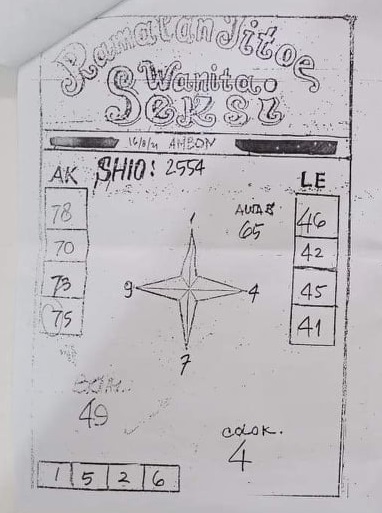 Ramalan Jitoe
Wanita.
Seksi
16/8/21 AMBON
AK SHIO: 2554 LE
78
70
73
75
46
42
45
41
65
1
9 4
7
49
COLOK.
4
1 5 2 6